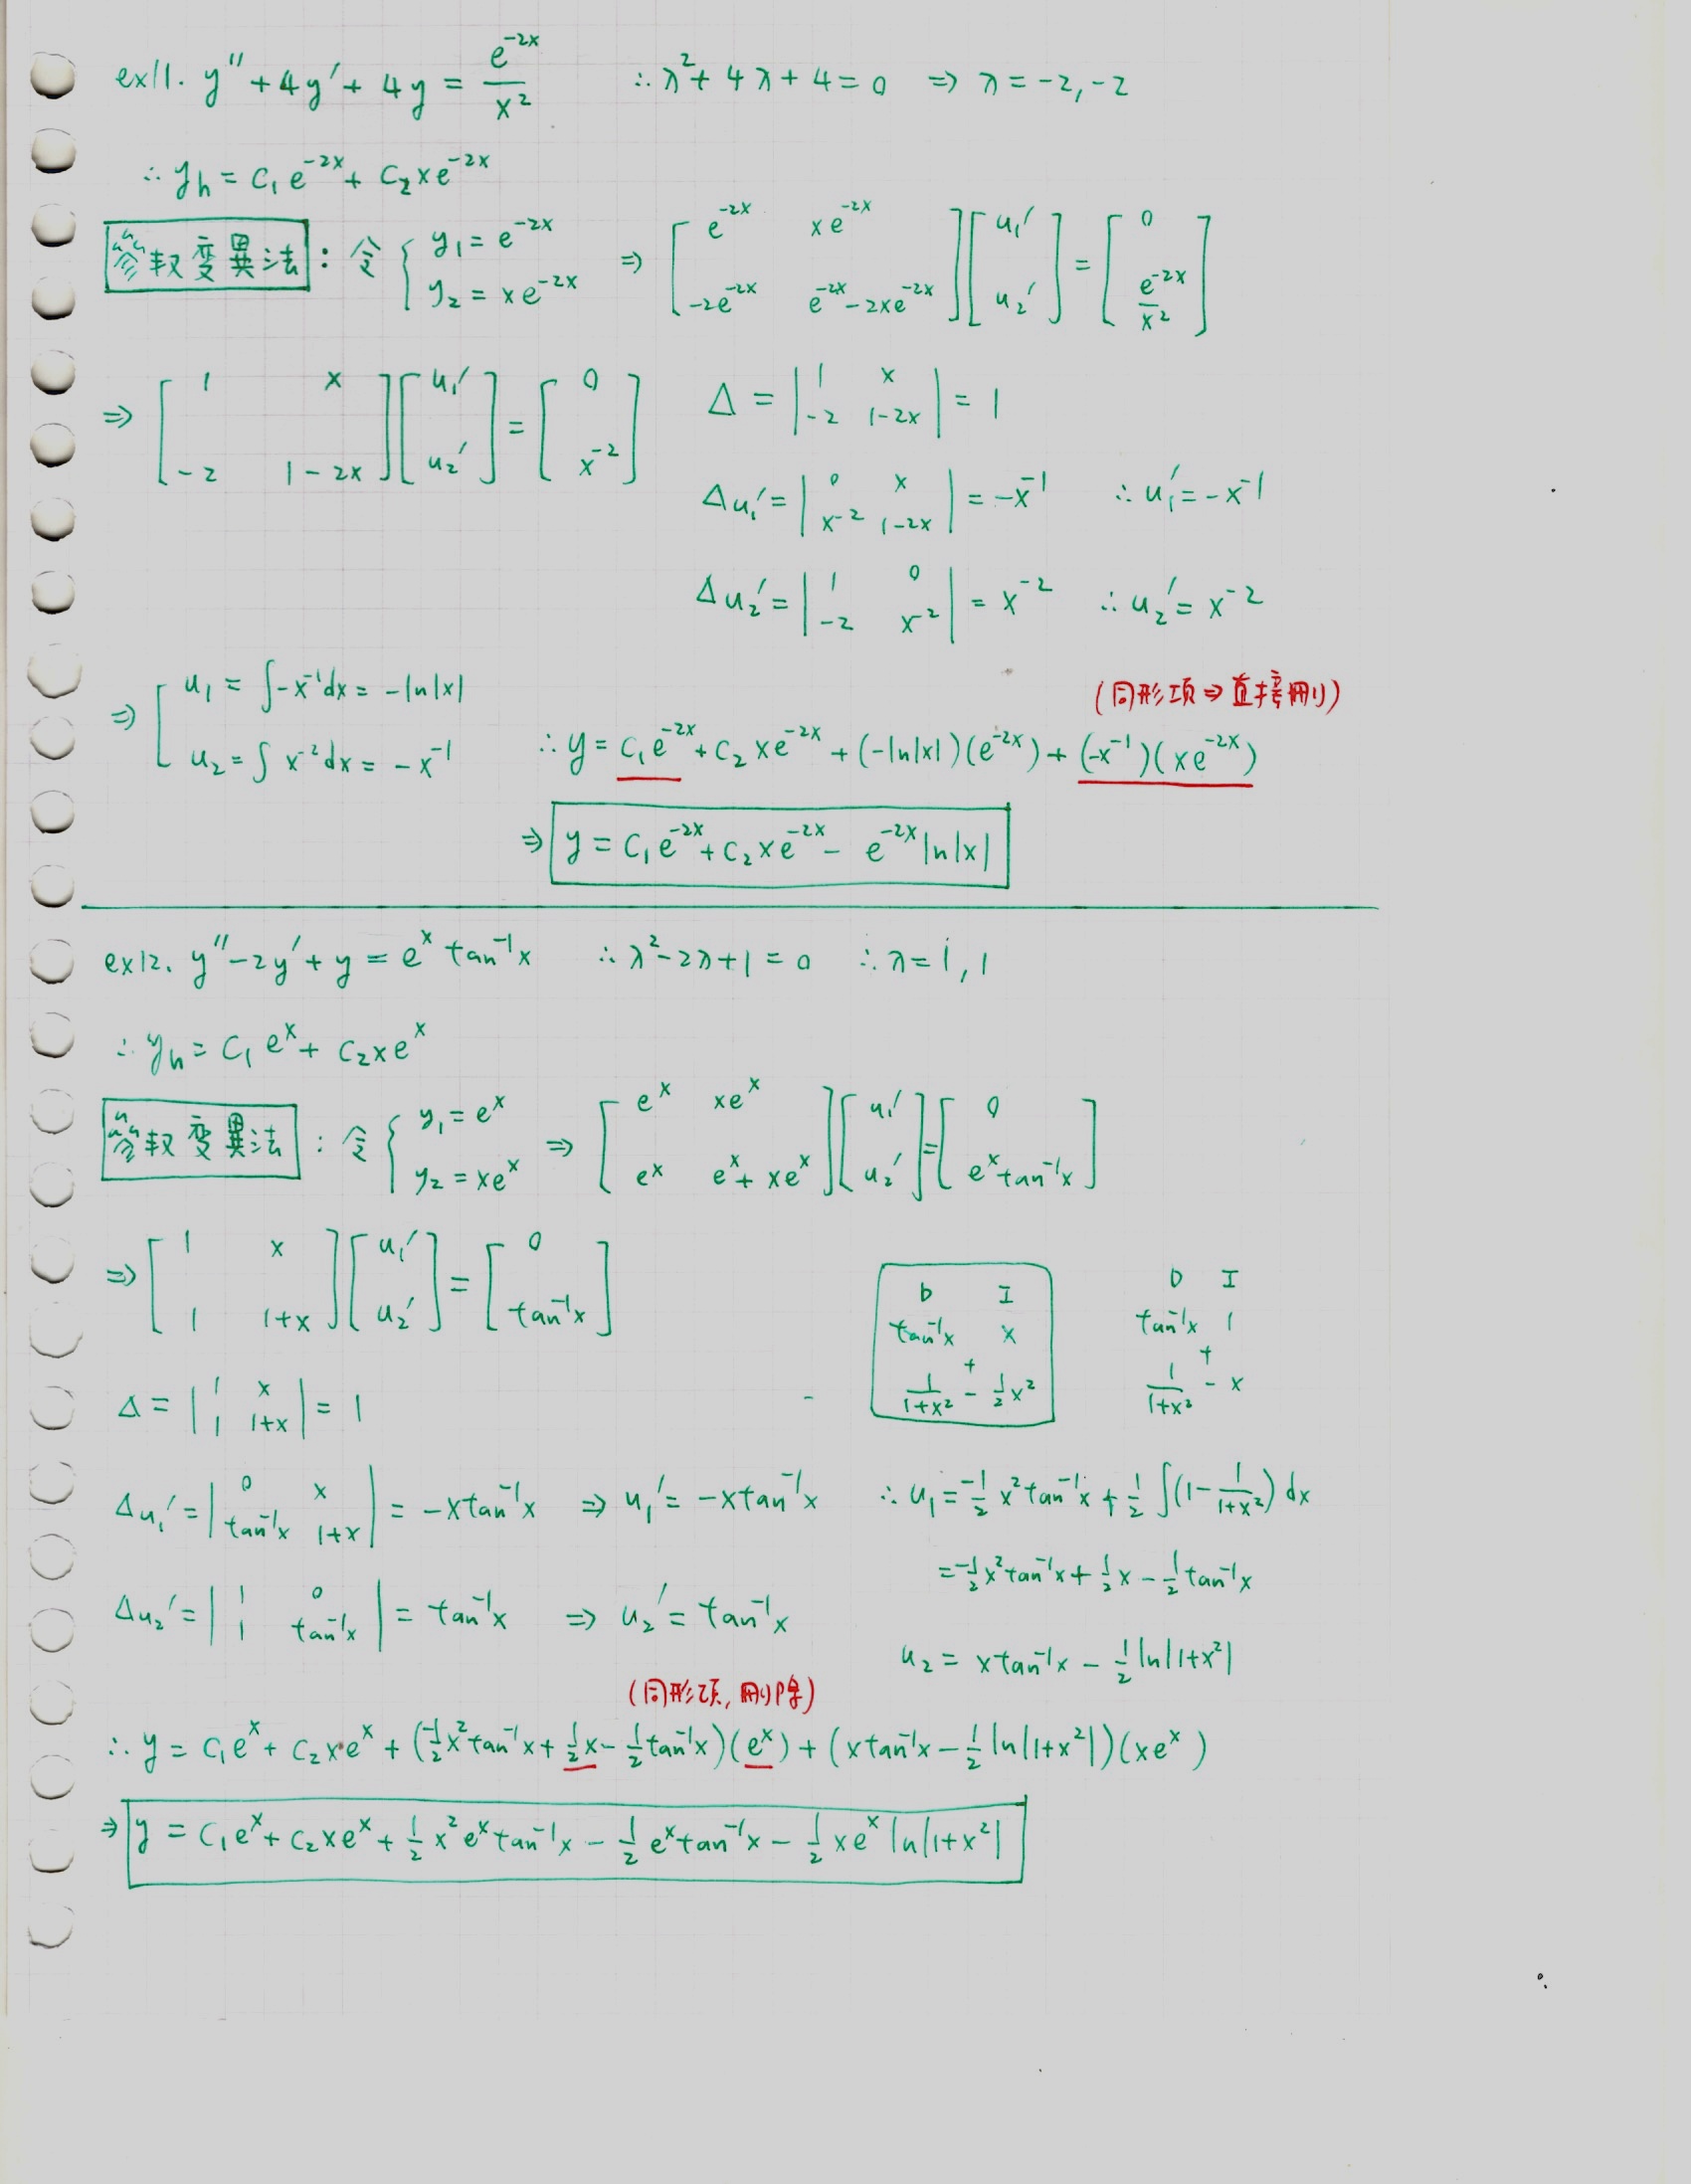 ex11. y″+4y′+4y = e^{-2x}/x² ∴ λ²+4λ+4=0 ⇒ λ=-2,-2
∴ y_h = C₁e^{-2x} + C₂xe^{-2x}
參数变異法 : 令 { y₁=e^{-2x}, y₂=xe^{-2x} ⇒ [e^{-2x} xe^{-2x}; -2e^{-2x} e^{-2x}-2xe^{-2x}][u₁′; u₂′] = [0; e^{-2x}/x²]
⇒ [1 x; -2 1-2x][u₁′; u₂′] = [0; x^{-2}] Δ = |1 x; -2 1-2x| = 1
Δu₁′ = |0 x; x^{-2} 1-2x| = -x^{-1} ∴ u₁′ = -x^{-1}
Δu₂′ = |1 0; -2 x^{-2}| = x^{-2} ∴ u₂′ = x^{-2}
⇒ [ u₁ = ∫-x^{-1}dx = -ln|x|
u₂ = ∫x^{-2}dx = -x^{-1}
(同形项⇒直接刪)
∴ y = C₁e^{-2x} + C₂xe^{-2x} + (-ln|x|)(e^{-2x}) + (-x^{-1})(xe^{-2x})
⇒ y = C₁e^{-2x} + C₂xe^{-2x} - e^{-2x}ln|x|
ex12. y″-2y′+y = e^x tan⁻¹x ∴ λ²-2λ+1=0 ∴ λ=1,1
∴ y_h = C₁e^x + C₂xe^x
參数变異法 : 令 { y₁=e^x, y₂=xe^x ⇒ [e^x xe^x; e^x e^x+xe^x][u₁′; u₂′] = [0; e^x tan⁻¹x]
⇒ [1 x; 1 1+x][u₁′; u₂′] = [0; tan⁻¹x]
D I
tan⁻¹x x
+
1/(1+x²) - ½x²
D I
tan⁻¹x 1
+
1/(1+x²) - x
Δ = |1 x; 1 1+x| = 1
Δu₁′ = |0 x; tan⁻¹x 1+x| = -xtan⁻¹x ⇒ u₁′ = -xtan⁻¹x ∴ u₁ = -½x²tan⁻¹x + ½∫(1-1/(1+x²))dx
= -½x²tan⁻¹x + ½x - ½tan⁻¹x
Δu₂′ = |1 0; 1 tan⁻¹x| = tan⁻¹x ⇒ u₂′ = tan⁻¹x
u₂ = xtan⁻¹x - ½ln|1+x²|
(同形项,刪除)
∴ y = C₁e^x + C₂xe^x + (-½x²tan⁻¹x + ½x - ½tan⁻¹x)(e^x) + (xtan⁻¹x - ½ln|1+x²|)(xe^x)
⇒ y = C₁e^x + C₂xe^x + ½x²e^x tan⁻¹x - ½e^x tan⁻¹x - ½xe^x ln|1+x²|